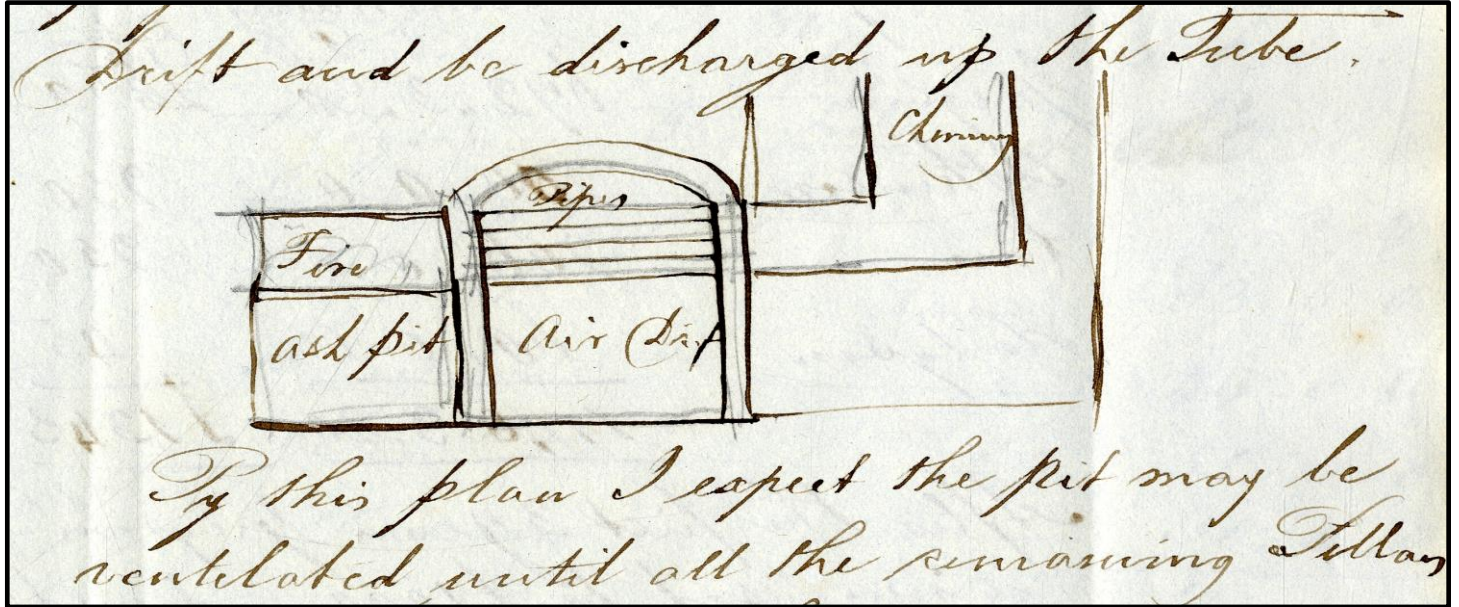 Drift and be discharged up the Tube.
Chimney
Pipes
Fire
ash pit
Air Drift
By this plan I expect the pit may be
ventilated until all the remaining Pillars